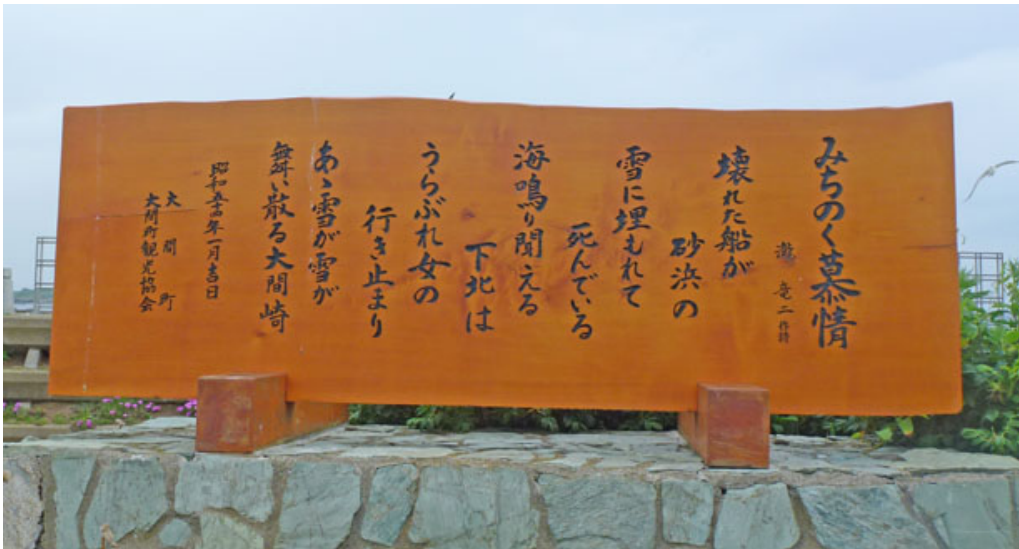 みちのく慕情
瀧 竜二 作詩
壊れた船が
砂浜の
雪に埋もれて
死んでいる
海鳴り聞える
下北は
うらぶれ女の
行き止まり
あゝ雪が雪が
舞い散る大間崎
昭和五十四年一月吉日
大間町
大間町観光協会